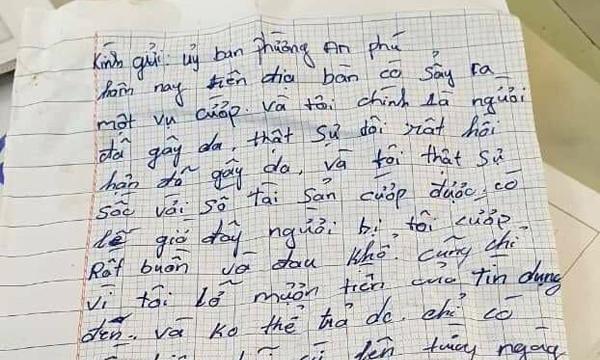 Kính gửi: ủy ban phường An phú
hôm nay trên địa bàn có sẩy ra
một vụ cướp. và tôi chính là người
đã gây da, thật sự tôi rất hối
hận đã gây da, và tôi thật sự
sốc với số tài sản cướp được, có
lẽ giờ đây người bị tôi cướp
Rất buồn và đau khổ. cũng chỉ
vì tôi lỡ mượn tiền của tín dụng
đen. và ko thể trả dc. chỉ có
đến từng ngày